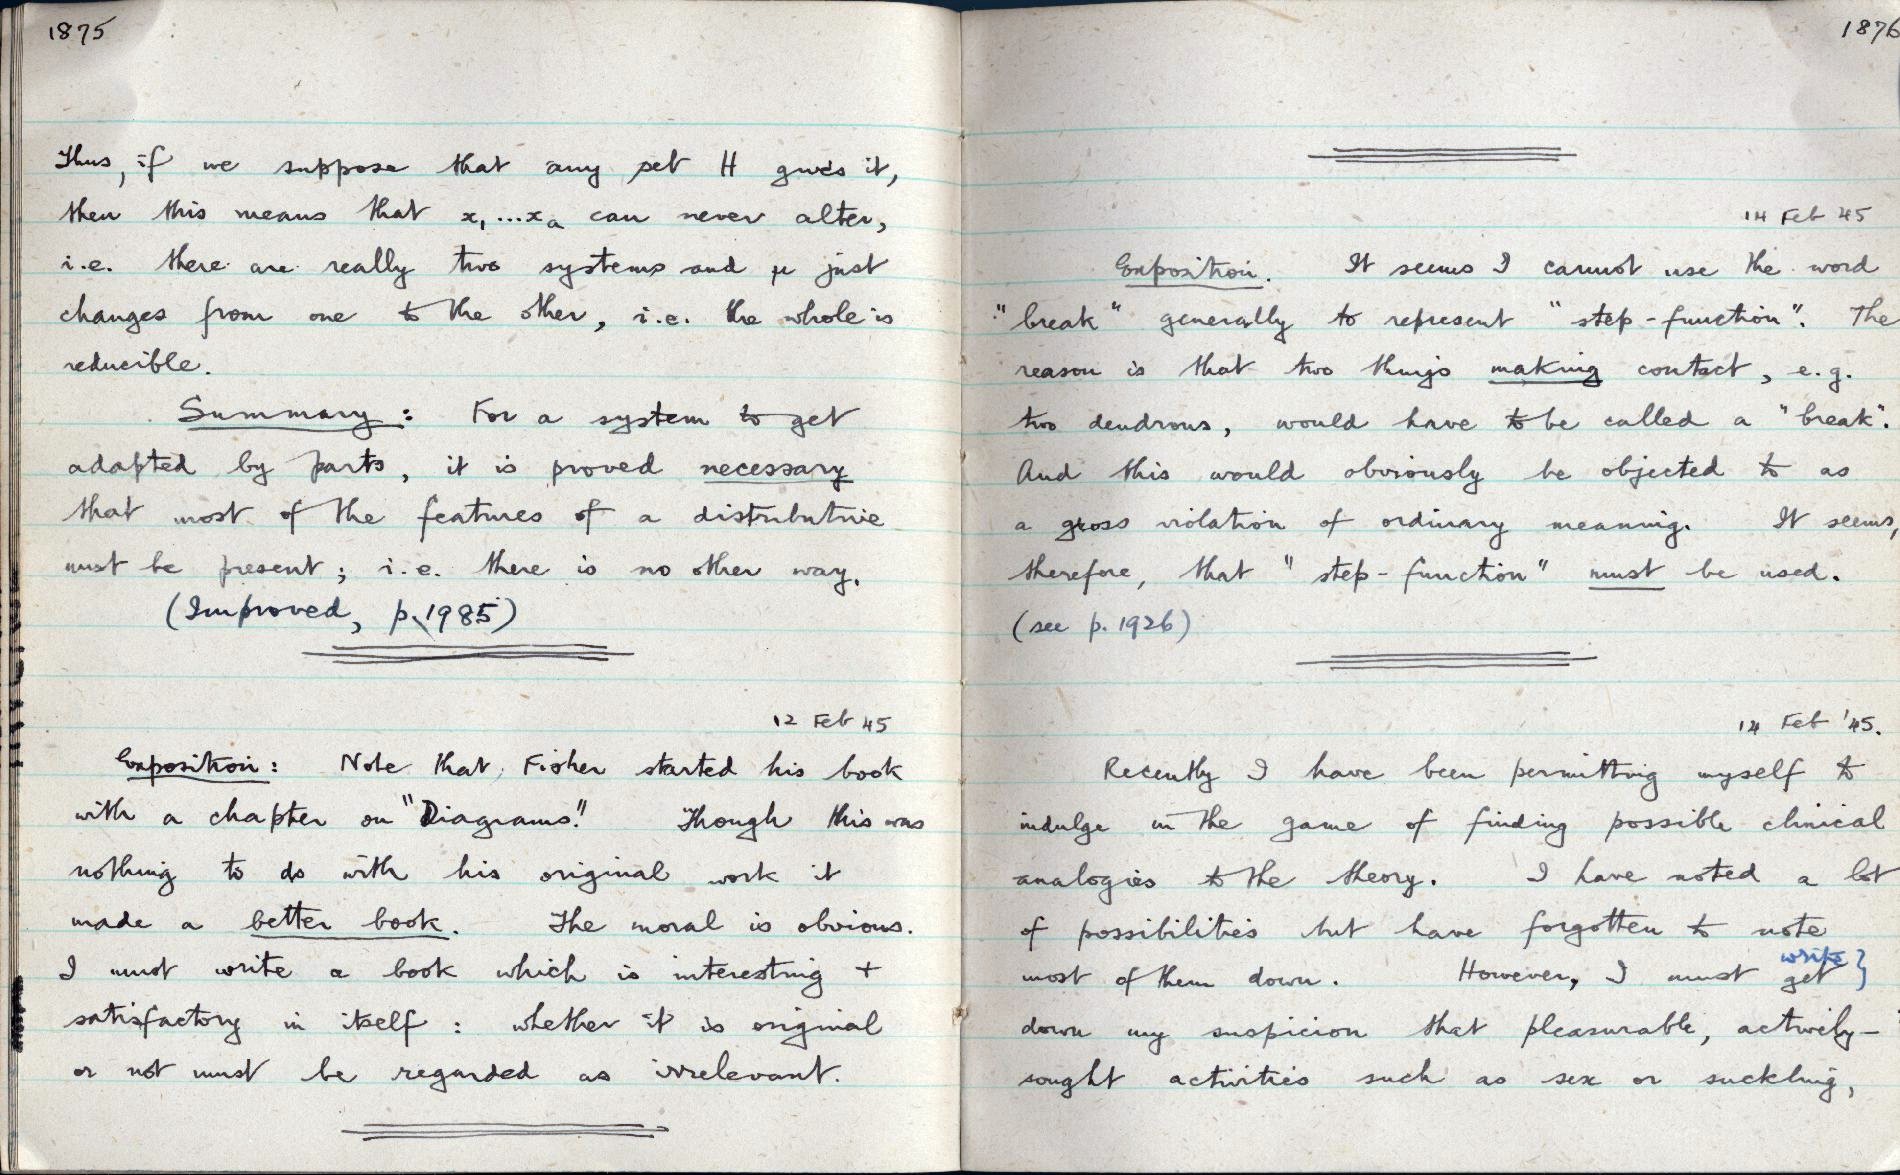 1875
Thus, if we suppose that any set H gives it,
then this means that x₁...xₐ can never alter,
i.e. there are really two systems and μ just
changes from one to the other, i.e. the whole is
reducible.
Summary: For a system to get
adapted by parts, it is proved necessary
that most of the features of a distributive
must be present; i.e. there is no other way.
(Improved, p. 1985)
12 Feb 45
Exposition: Note that Fisher started his book
with a chapter on "Diagrams". Though this was
nothing to do with his original work it
made a better book. The moral is obvious.
I must write a book which is interesting +
satisfactory in itself: whether it is original
or not must be regarded as irrelevant.
1876
14 Feb 45
Exposition. It seems I cannot use the word
"break" generally to represent "step-function". The
reason is that two things making contact, e.g.
two dendrons, would have to be called a "break".
And this would obviously be objected to as
a gross violation of ordinary meaning. It seems,
therefore, that "step-function" must be used.
(see p. 1926)
14 Feb '45.
Recently I have been permitting myself to
indulge in the game of finding possible clinical
analogies to the theory. I have noted a lot
of possibilities but have forgotten to note
write
most of them down. However, I must get }
down my suspicion that pleasurable, actively-
sought activities such as sex or suckling,